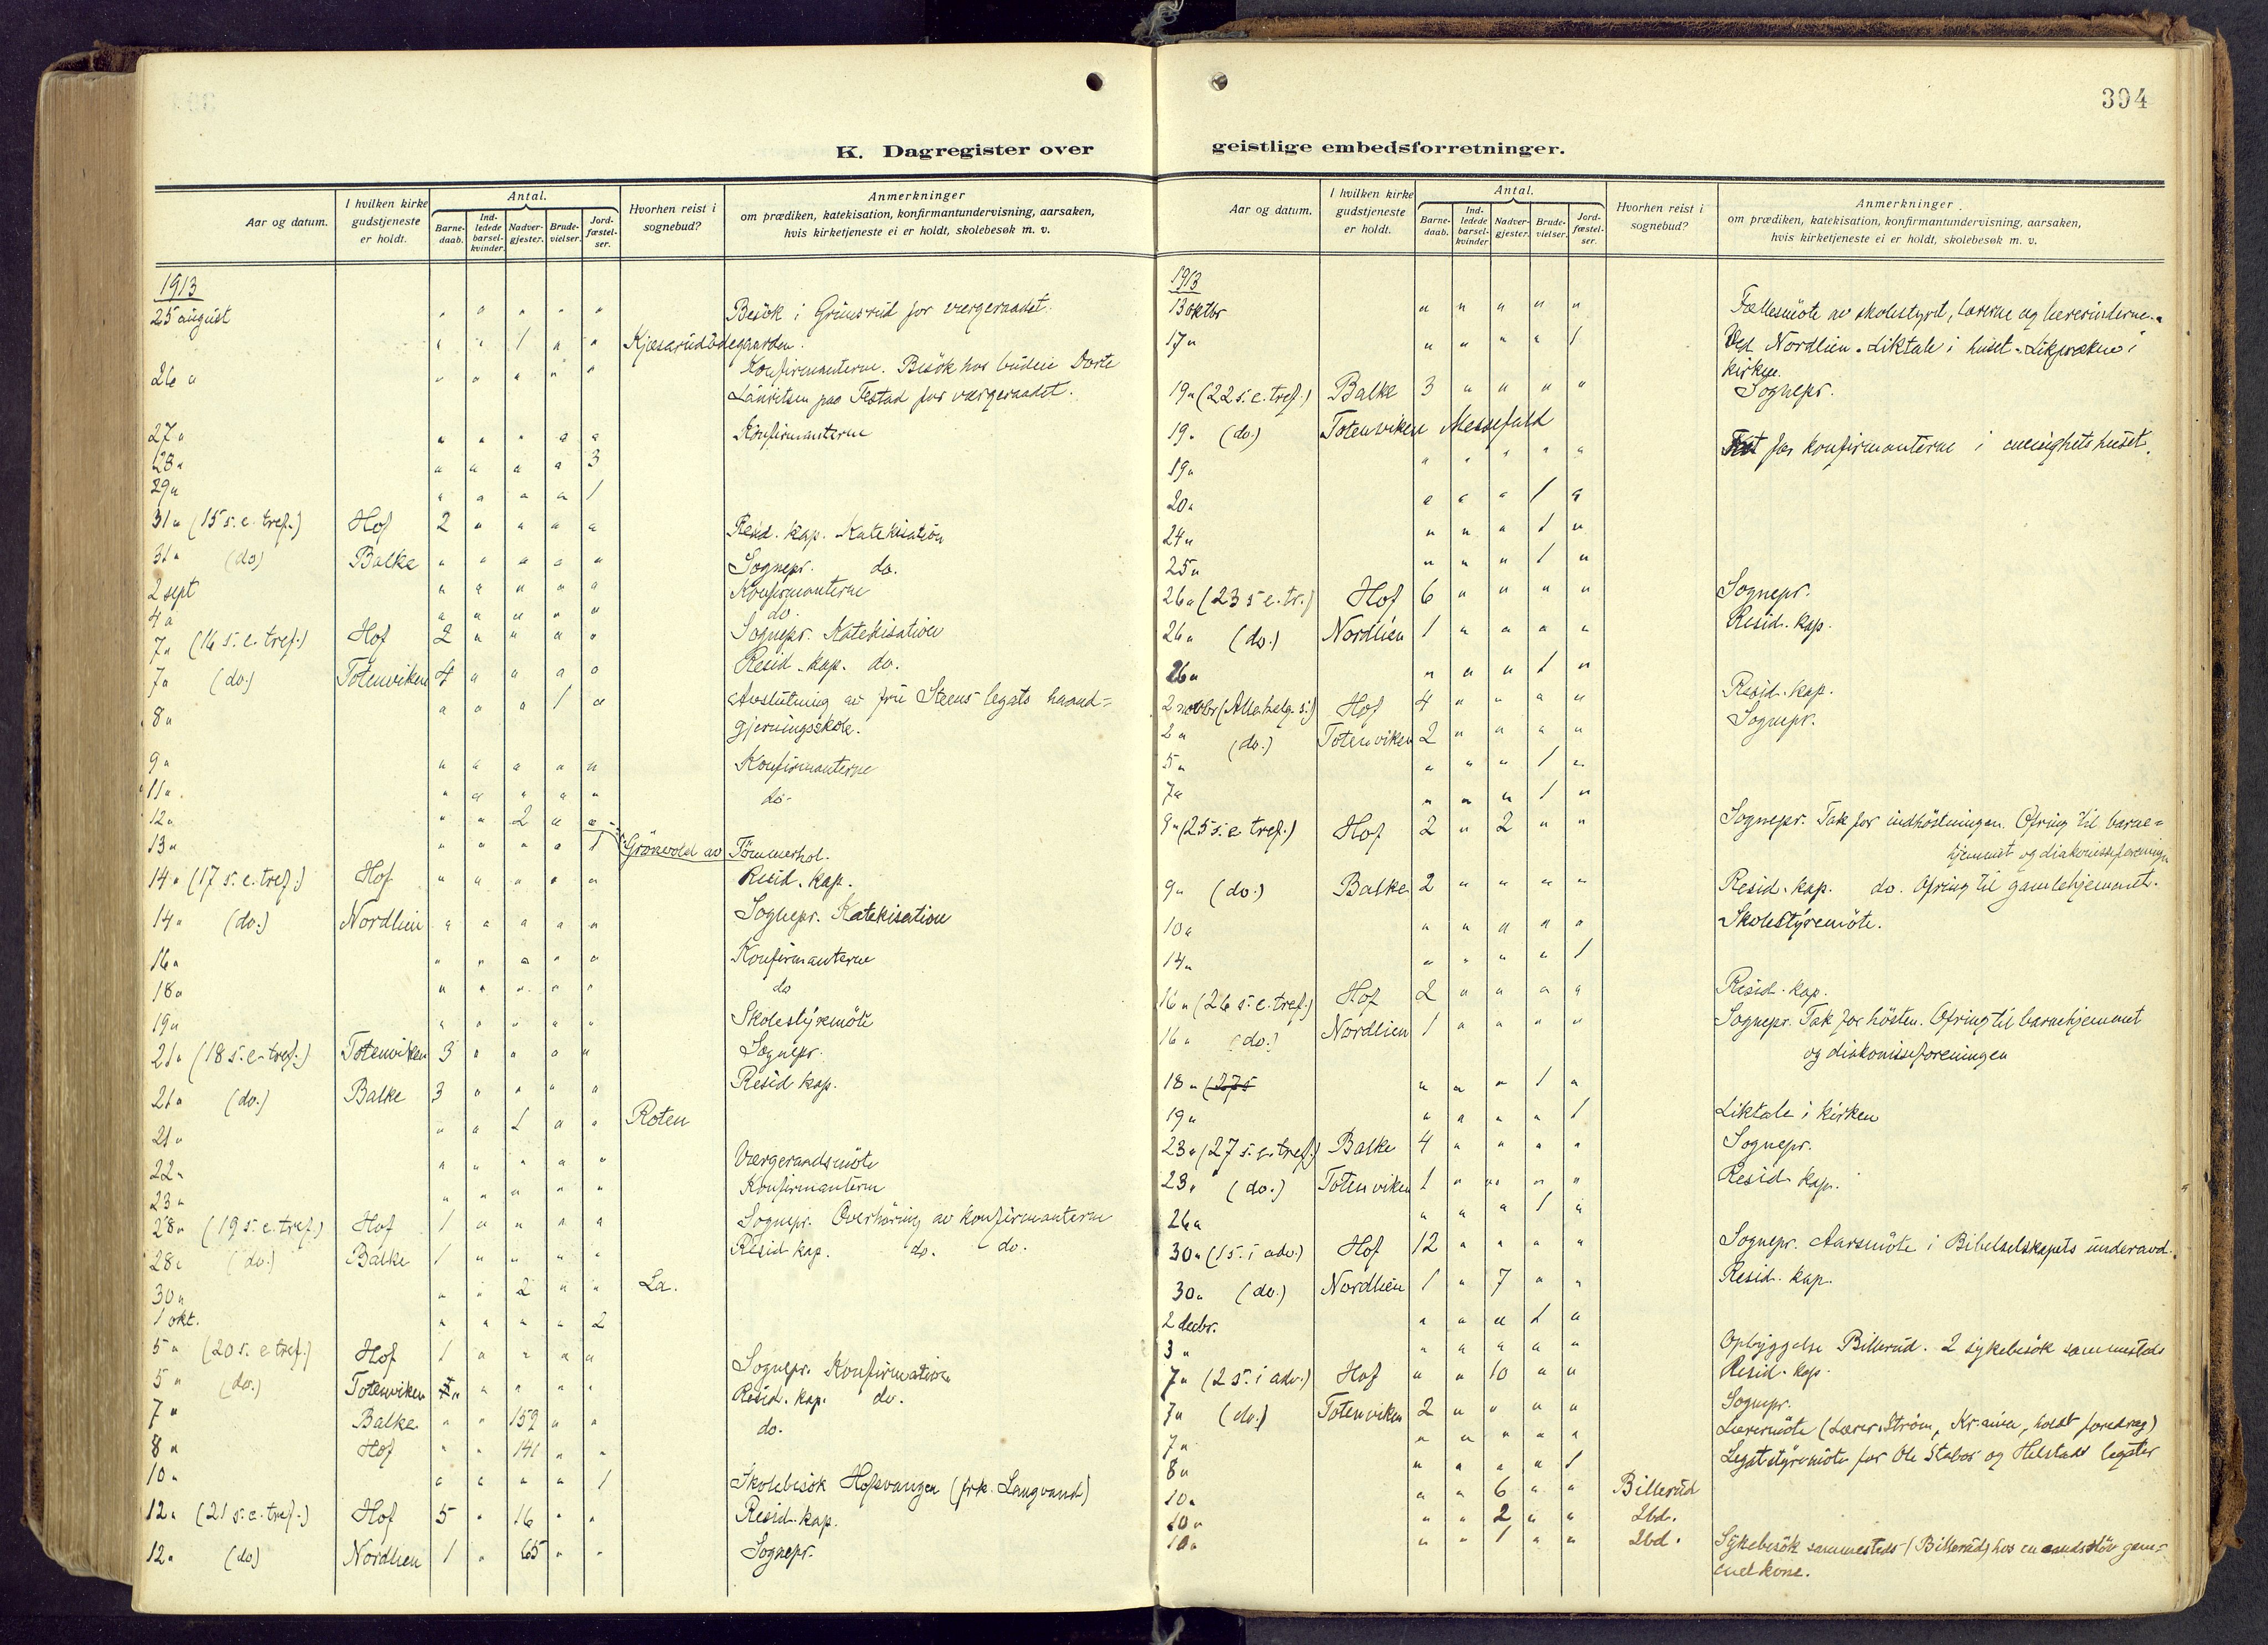 394
K. Dagregister over
geistlige embedsforretninger.
Aar og datum. I hvilken kirke gudstjeneste er holdt. Antal. Barne-daab. Ind-ledede barsel-kvinder. Nadver-gjester. Brude-vielser. Jord-fæstel-ser. Hvorhen reist i sognebud? Anmerkninger om prædiken, katekisation, konfirmantundervisning, aarsaken, hvis kirketjeneste ei er holdt, skolebesøk m. v.
1913
25 august " " " " " Besök i Grimsrud for vergeraadet.
" " 1 " " Kjæsarudödegaarden.
26 " " " " " " Konfirmanterne. Besök hos budeie Dorte
Lauritsen paa Festad for vergeraadet.
27 " " " " " " Konfirmanterne
28 " " " " " 3
29 " " " " " 1
31 " (15 s. e. tref.) Hof 2 " " " " Resid. kap. Katekisation
31 " (do) Balke " " " " " Sognepr. do.
2 sept " " " " " Konfirmanterne
4 " " " " " " do.
7 " (16 s. e. tref.) Hof 2 " " " " Sognepr. Katekisation
7 " (do.) Totenviken 4 " " " " Resid. kap. do.
8 " " " " 1 " Avslutning av fru Steens legats haand=
gjerningsskole.
9 " " " " " " Konfirmanterne
11 " " " " " " do.
12 " " " 2 " "
13 " " " " " 1 Grönvold av Tömmerhol.
14 " (17 s. e. tref.) Hof " " " " " Resid. kap.
14 " (do.) Nordlien " " " " " Sognepr. Katekisation
16 " " " " " " Konfirmanterne
18 " " " " " " do
19 " " " " " " Skolestyremöte
21 " (18 s. e. tref.) Totenviken 3 " " " " Sognepr.
21 " (do.) Balke 3 " " " " Resid kap.
21 " " " 1 " " Roten
22 " " " " " " Vergeraadsmöte
23 " " " " " " Konfirmanterne
28 " (19 s. e. tref.) Hof 1 " " " " Sognepr. Overhöring av konfirmanterne
28 " (do.) Balke 1 " " " " Resid kap. do. do.
30 " " " 2 " " La.
1 okt. " " " " 2
5 " (20 s. e tref.) Hof 1 " " " " Sognepr. Konfirmation
5 " (do.) Totenviken " " " " " Resid. kap. do.
7 " Balke " " 159 " " do.
8 " Hof " " 141 " "
10 " " " " " 1 Skolebesök Hofsvangen (frk. Langvand)
12 " (21 s. e. tref.) Hof 5 " 16 " " Resid. kap.
12 " (do) Nordlien 1 " 65 " " Sognepr.
Aar og datum. I hvilken kirke gudstjeneste er holdt. Antal. Barne-daab. Ind-ledede barsel-kvinder Nadver-gjester. Brude-vielser. Jord-fæstel-ser. Hvorhen reist i sognebud? Anmerkninger om prædiken, katekisation, konfirmantundervisning, aarsaken, hvis kirketjeneste ei er holdt, skolebesøk m. v.
1913
13 oktbr " " " " " Fællesmöte av skolestyret, lærerne og lærerinderne.
17 " " " " " 1 Ved Nordlien. Liktale i huset. Likpræken i
kirken.
19 " (22 s. e. tref.) Balke 3 " " " " Sognepr.
19 " (do.) Totenviken Messefald
19 " " " " " " Fest for konfirmanterne i enighetshuset.
20 " " " " 1 "
24 " " " " 1 "
25 " " " " 1 "
26 " (23 s e. tr.) Hof 6 " " " " Sognepr.
26 " (do.) Nordlien 1 " " " " Resid. kap.
26 " " " " 1 "
2 novbr (Alle helg. s.) Hof 4 " " " " Resid. kap.
2 " (do.) Totenviken 2 " " " " Sognepr.
5 " " " " 1 "
7 " " " " 1 "
9 " (25 s. e tref.) Hof 2 " 2 " " Sognepr. Tak for indhöstningen. Ofring til barne=
hjemmet og diakonisseforeningen
9 " (do.) Balke 2 " " " " Resid. kap. do. Ofring til gamlehjemmet.
10 " " " " " " Skolestyremöte.
14 " " " " " 1
16 " (26 s. e. tref.) Hof 2 " " " " Resid. kap.
16 " (do.) Nordlien 1 " " " " Sognepr. Tak for hösten. Ofring til barnehjemmet
og diakonisseforeningen
18 " (27 s " " " 1 "
19 " " " " " 1 Liktale i kirken
23 " (27 s. e. tref.) Balke 4 " " " " Sognepr.
23 " (do.) Totenviken 1 " " " " Resid. kap.
26 " " " " 1 "
30 " (1 s. i adv.) Hof 12 " " " " Sognepr. Aarsmöte i Bibelselskapets underavd.
30 " (do.) Nordlien 1 " 7 " " Resid. kap.
2 decbr. " " " 1 "
3 " " " " " " Opbyggelse Billerud. 2 sykebesök sammesteds
7 " (2 s. i adv.) Hof " " 10 " " Resid. kap.
7 " (do.) Totenviken 2 " " " " Sognepr.
7 " " " " " " Lærermöte (Lærer Ström, Kr.ania, holdt foredrag)
8 " " " " " 1 Legatstyremöte for Ole Stabos og Helstads legater
10 " " " 6 " " Billerud
10 " " " 2 " " Ibd.
10 " " " 1 " " Ibd. Sykebesök sammesteds (Billerud) hos en aandsslöv gam=
mel kone.